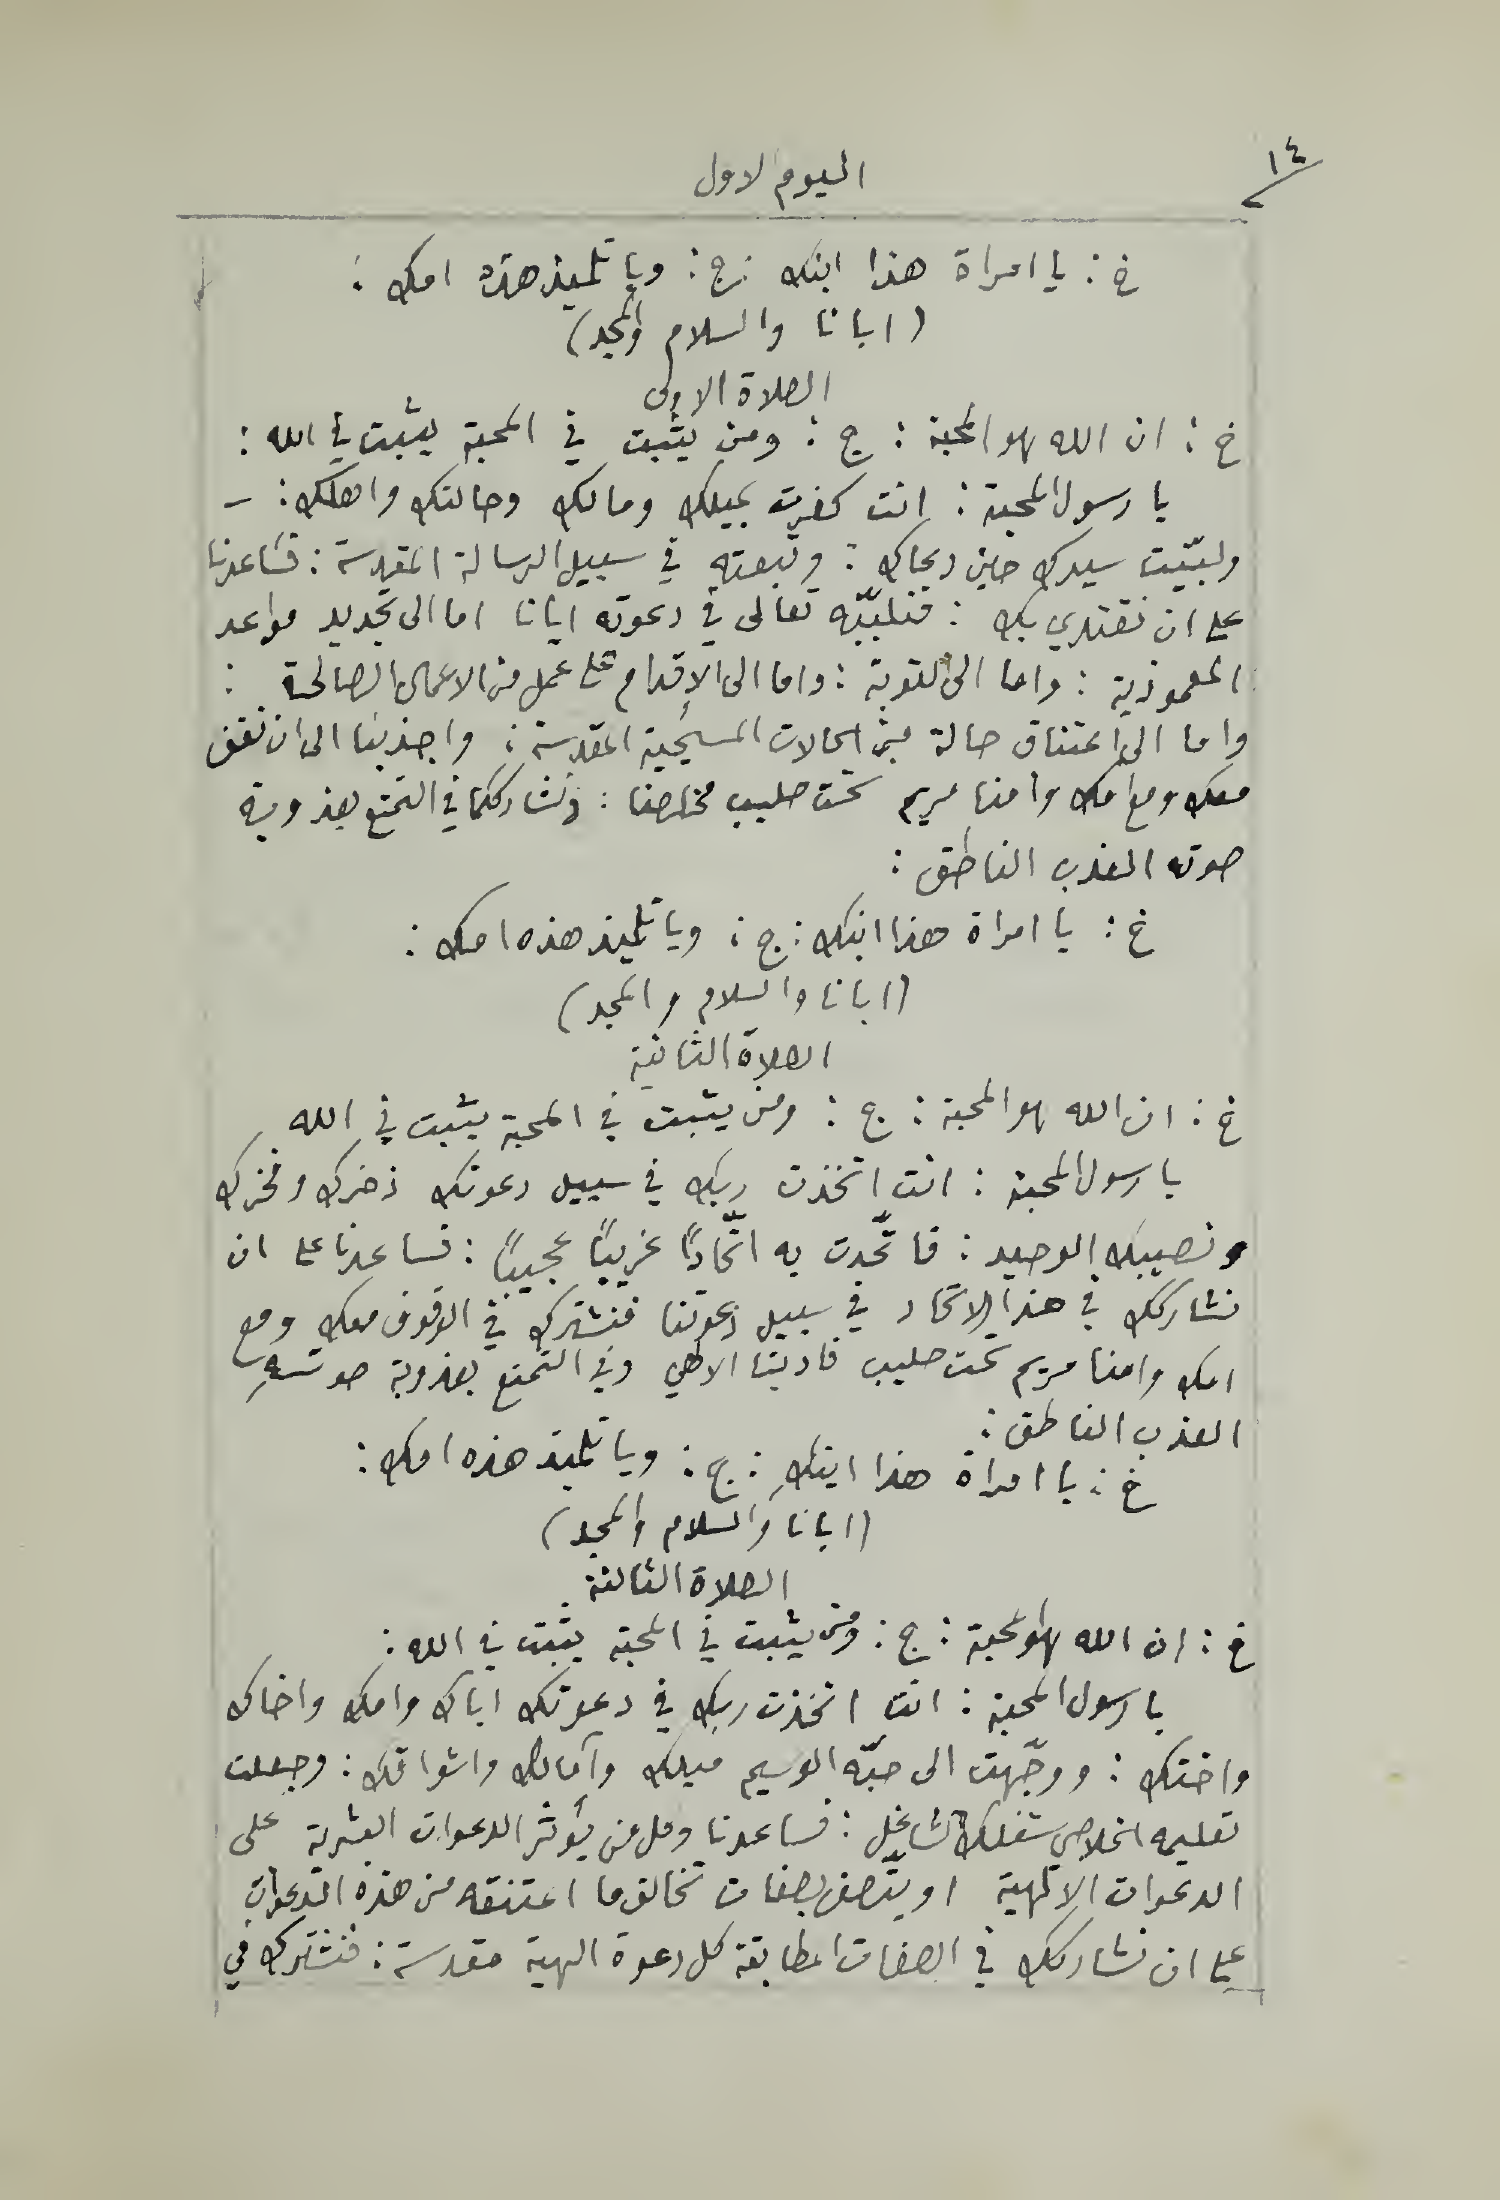 ١٤
اليوم الاول
خ : يا امراة هذا ابنك : ج : ويا تلميذ هذه امك :
( ابانا والسلام والمجد )
الصلاة الاولى
خ : ان الله هو المحبة : ج : ومن يثبت في المحبة يثبت في الله :
يا رسول المحبة : انت كفرت بميلك ومالك وحالتك واهلك : –
ولبّيت سيدك حين دعاك : وتبعته في سبيل الرسالة المقدسة : فساعدنا
على ان نقتدي بك : فنلبّيه تعالى في دعوته ايانا اما الى تجديد مواعد
المعموذية : واما الى التوبة : واما الى الاقدام على عمل من الاعمال الصالحة :
واما الى اعتناق حالة من الحالات المسيحية المقدسة : واجذبنا الى ان نقف
معك ومع امك وامنا مريم تحت صليب مخلصنا : ونشارككما في التمتع بعذوبة
صوته العذب الناطق :
خ : يا امراة هذا ابنك : ج : ويا تلميذ هذه امك :
( ابانا والسلام والمجد )
الصلاة الثانية
خ : ان الله هو المحبة : ج : ومن يثبت في المحبة يثبت في الله
يا رسول المحبة : انت اتخذت ربك في سبيل دعوتك ذخرك وفخرك
ونصيبك الوحيد : فاتّحدت به اتّحادًا غريبًا عجيبًا : فساعدنا على ان
نشاركك في هذا الاتحاد في سبيل دعوتنا فنشترك في الوقوف معك ومع
امك وامنا مريم تحت صليب فادينا الالهي وفي التمتع بعذوبة صوته
العذب الناطق :
خ : يا امراة هذا ابنكِ : ج : ويا تلميذ هذه امك :
( ابانا والسلام والمجد )
الصلاة الثالثة
خ : ان الله هو المحبة : ج : ومن يثبت في المحبة يثبت في الله :
يا رسول المحبة : انت اتخذت ربك في دعوتك اباك وامك واخاك
واختك : ووجّهت الى حبّه الوسيم ميلك وآمالك واشواقك : وجعلت
تعليمه الخلاصي شغلك الشاغل : فساعدنا وكل من يؤثر الدعوات البشرية على
الدعوات الالهية او يتّصف بصفات تخالف ما اعتنقه من هذه الدعوات
على ان نشاركك في الصفات المطابقة كل دعوة الهية مقدسة : فنشترك في